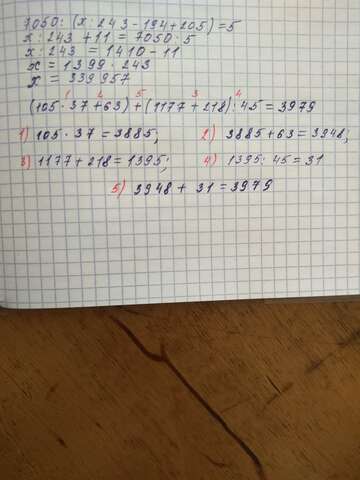 7050 : (x : 243 - 194 + 205) = 5
x : 243 + 11 = 7050 : 5
x : 243 = 1410 - 11
x = 1399 · 243
x = 339957
1 2 5 3 4
(105 · 37 + 63) + (1177 + 218) : 45 = 3979
1) 105 · 37 = 3885; 2) 3885 + 63 = 3948;
3) 1177 + 218 = 1395; 4) 1395 : 45 = 31
5) 3948 + 31 = 3979